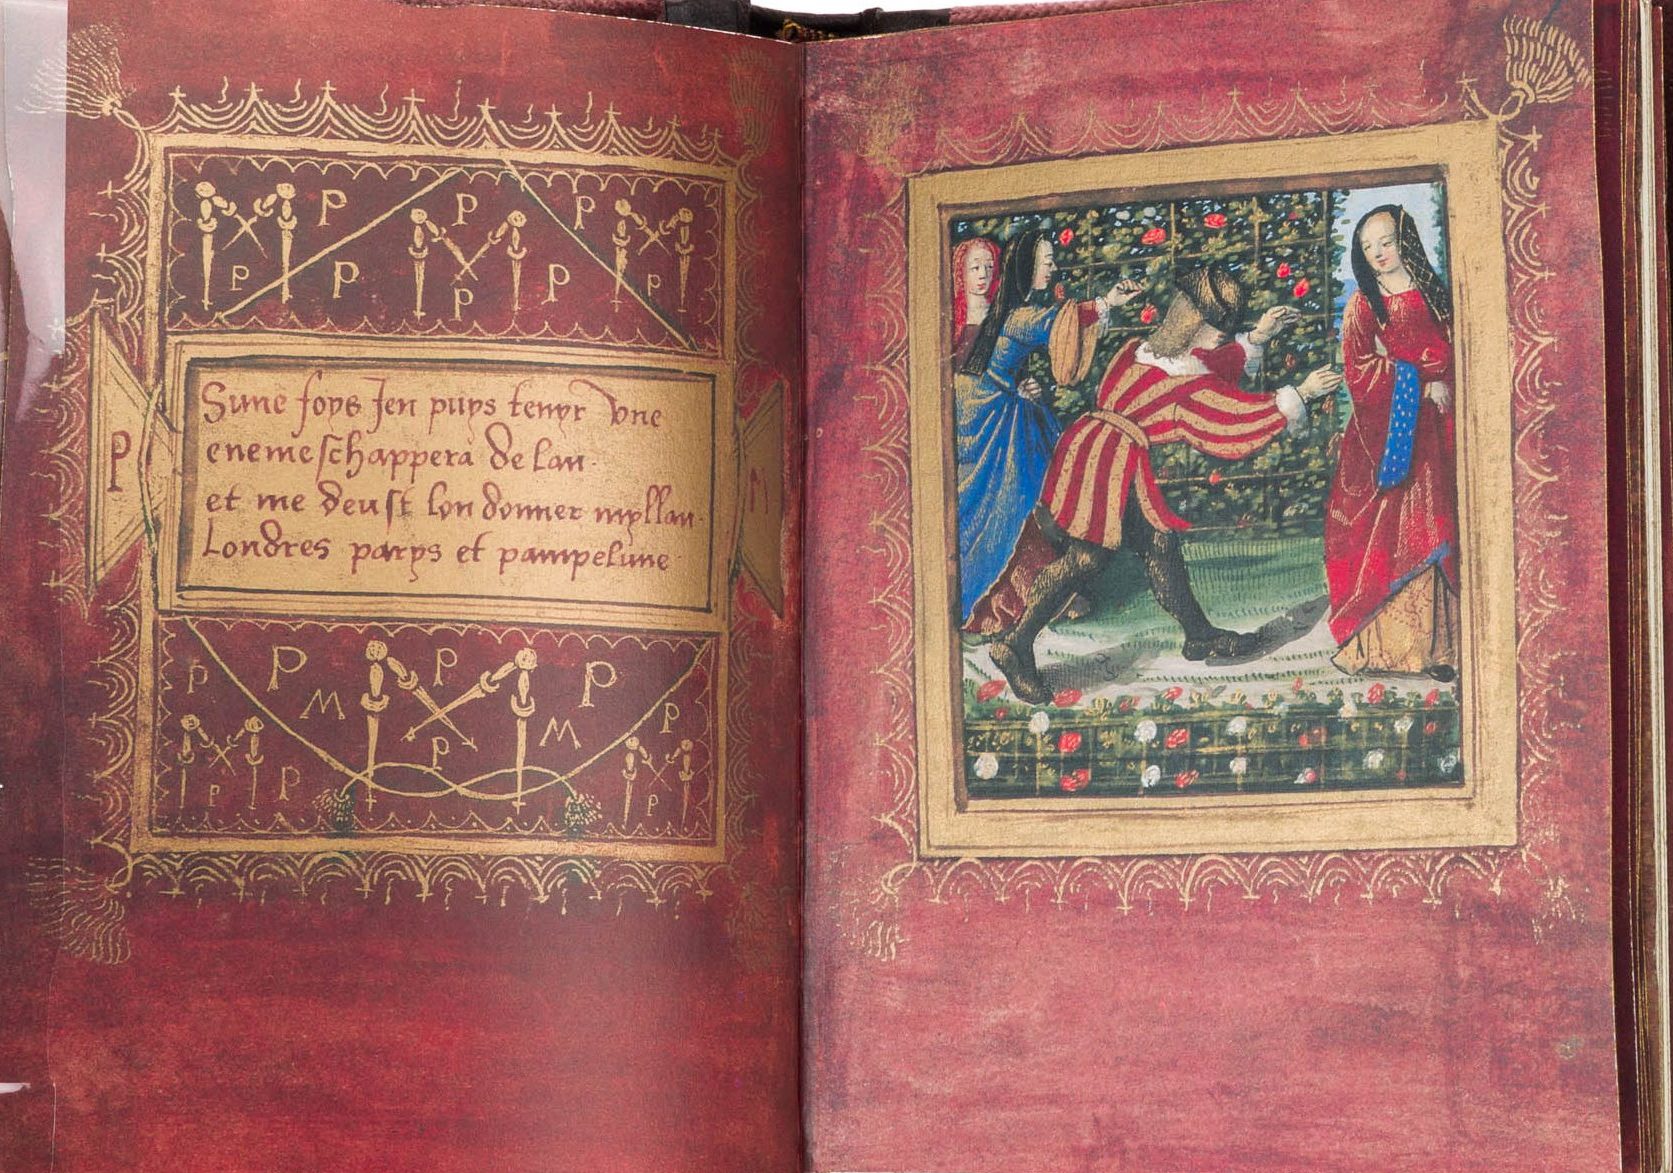 P P P
P P P P P
P M
Sune foys Jen puys tenyr vne
eneme schappera de lan.
et me deust lon donner myllan.
Londres parys et pampelune.
P P P P
M M
P P P P